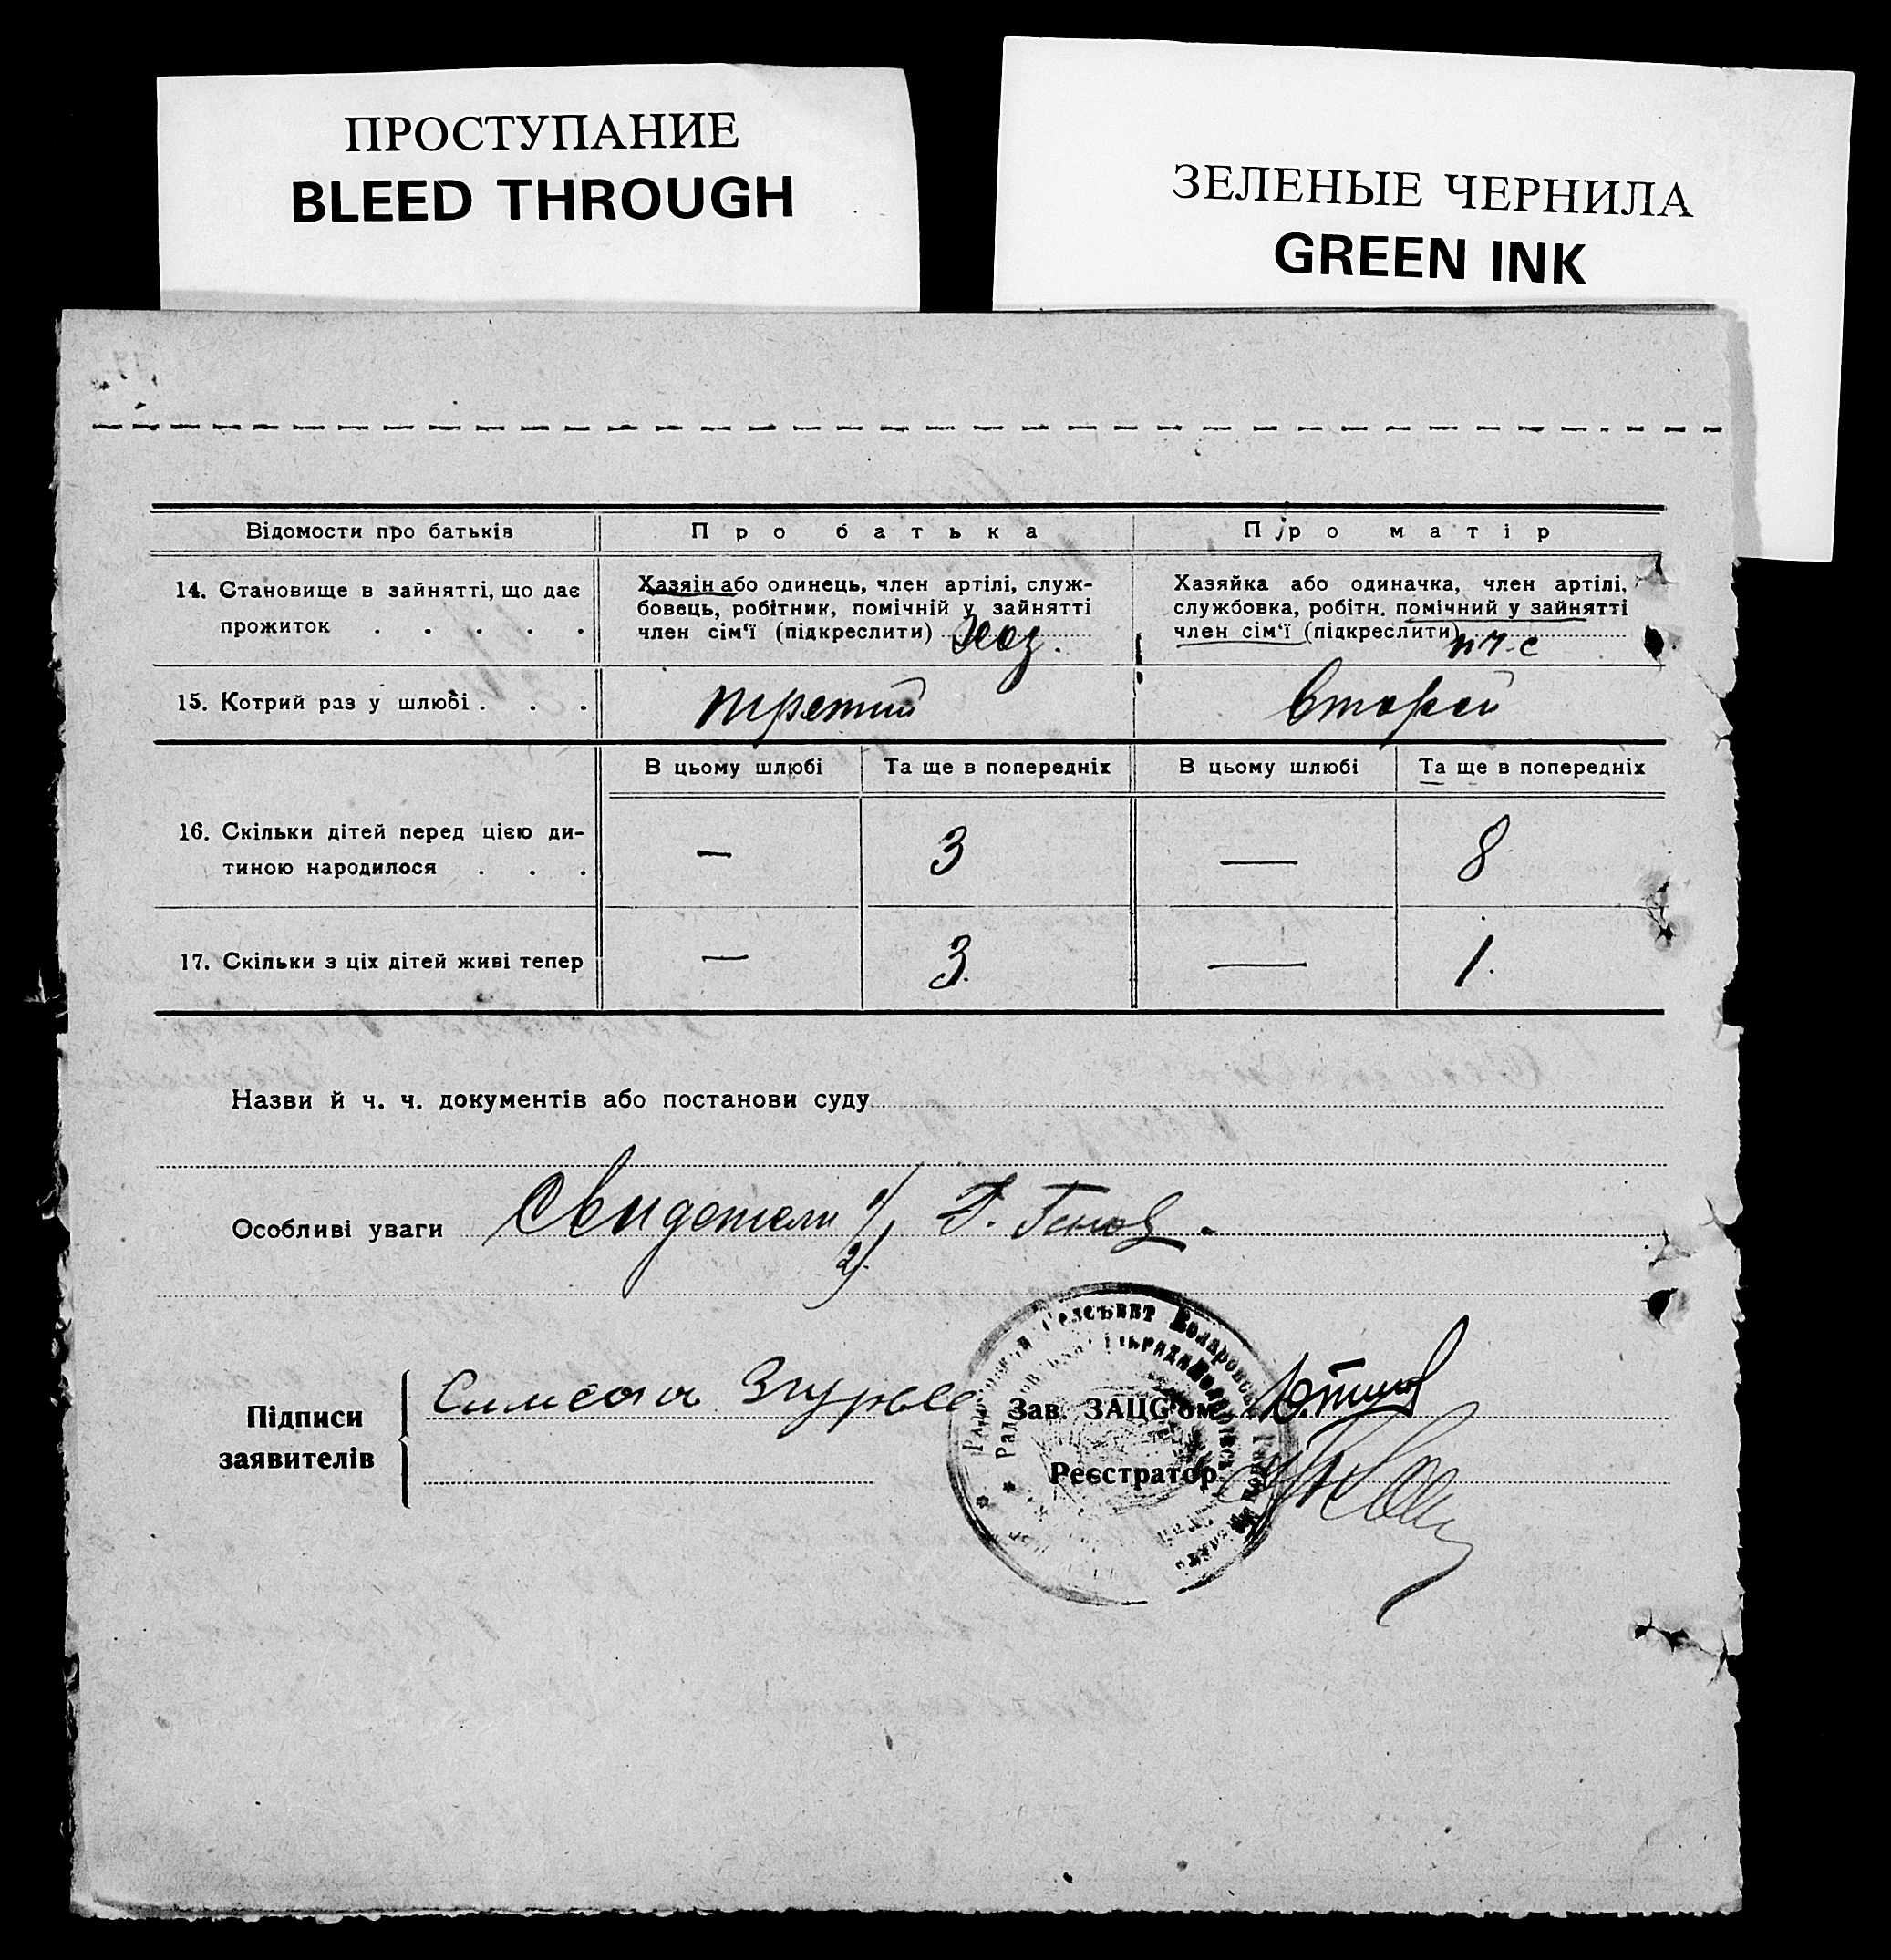 ПРОСТУПАНИЕ
BLEED THROUGH
ЗЕЛЕНЫЕ ЧЕРНИЛА
GREEN INK
Відомости про батьків
Про батька
Про матір
14. Становище в зайнятті, що дає
прожиток . . . . .
Хазяін або одинець, член артілі, служ-
бовець, робітник, помічній у зайнятті
член сім'ї (підкреслити) Хоз.
Хазяйка або одиначка, член артілі,
службовка, робітн. помічний у зайнятті
член сім'ї (підкреслити) п.ч.с
15. Котрий раз у шлюбі . . .
третий
второй
В цьому шлюбі
Та ще в попередніх
В цьому шлюбі
Та ще в попередніх
16. Скільки дітей перед цією ди-
тиною народилося . . .
— 3 — 8
17. Скільки з ціх дітей живі тепер
— 3. — 1.
Назви й ч. ч. документів або постанови суду
Особливі уваги Свидетели 1/
2/
Підписи
заявителів
Зав. ЗАЦС'ом
Реєстратор
Селсъвит